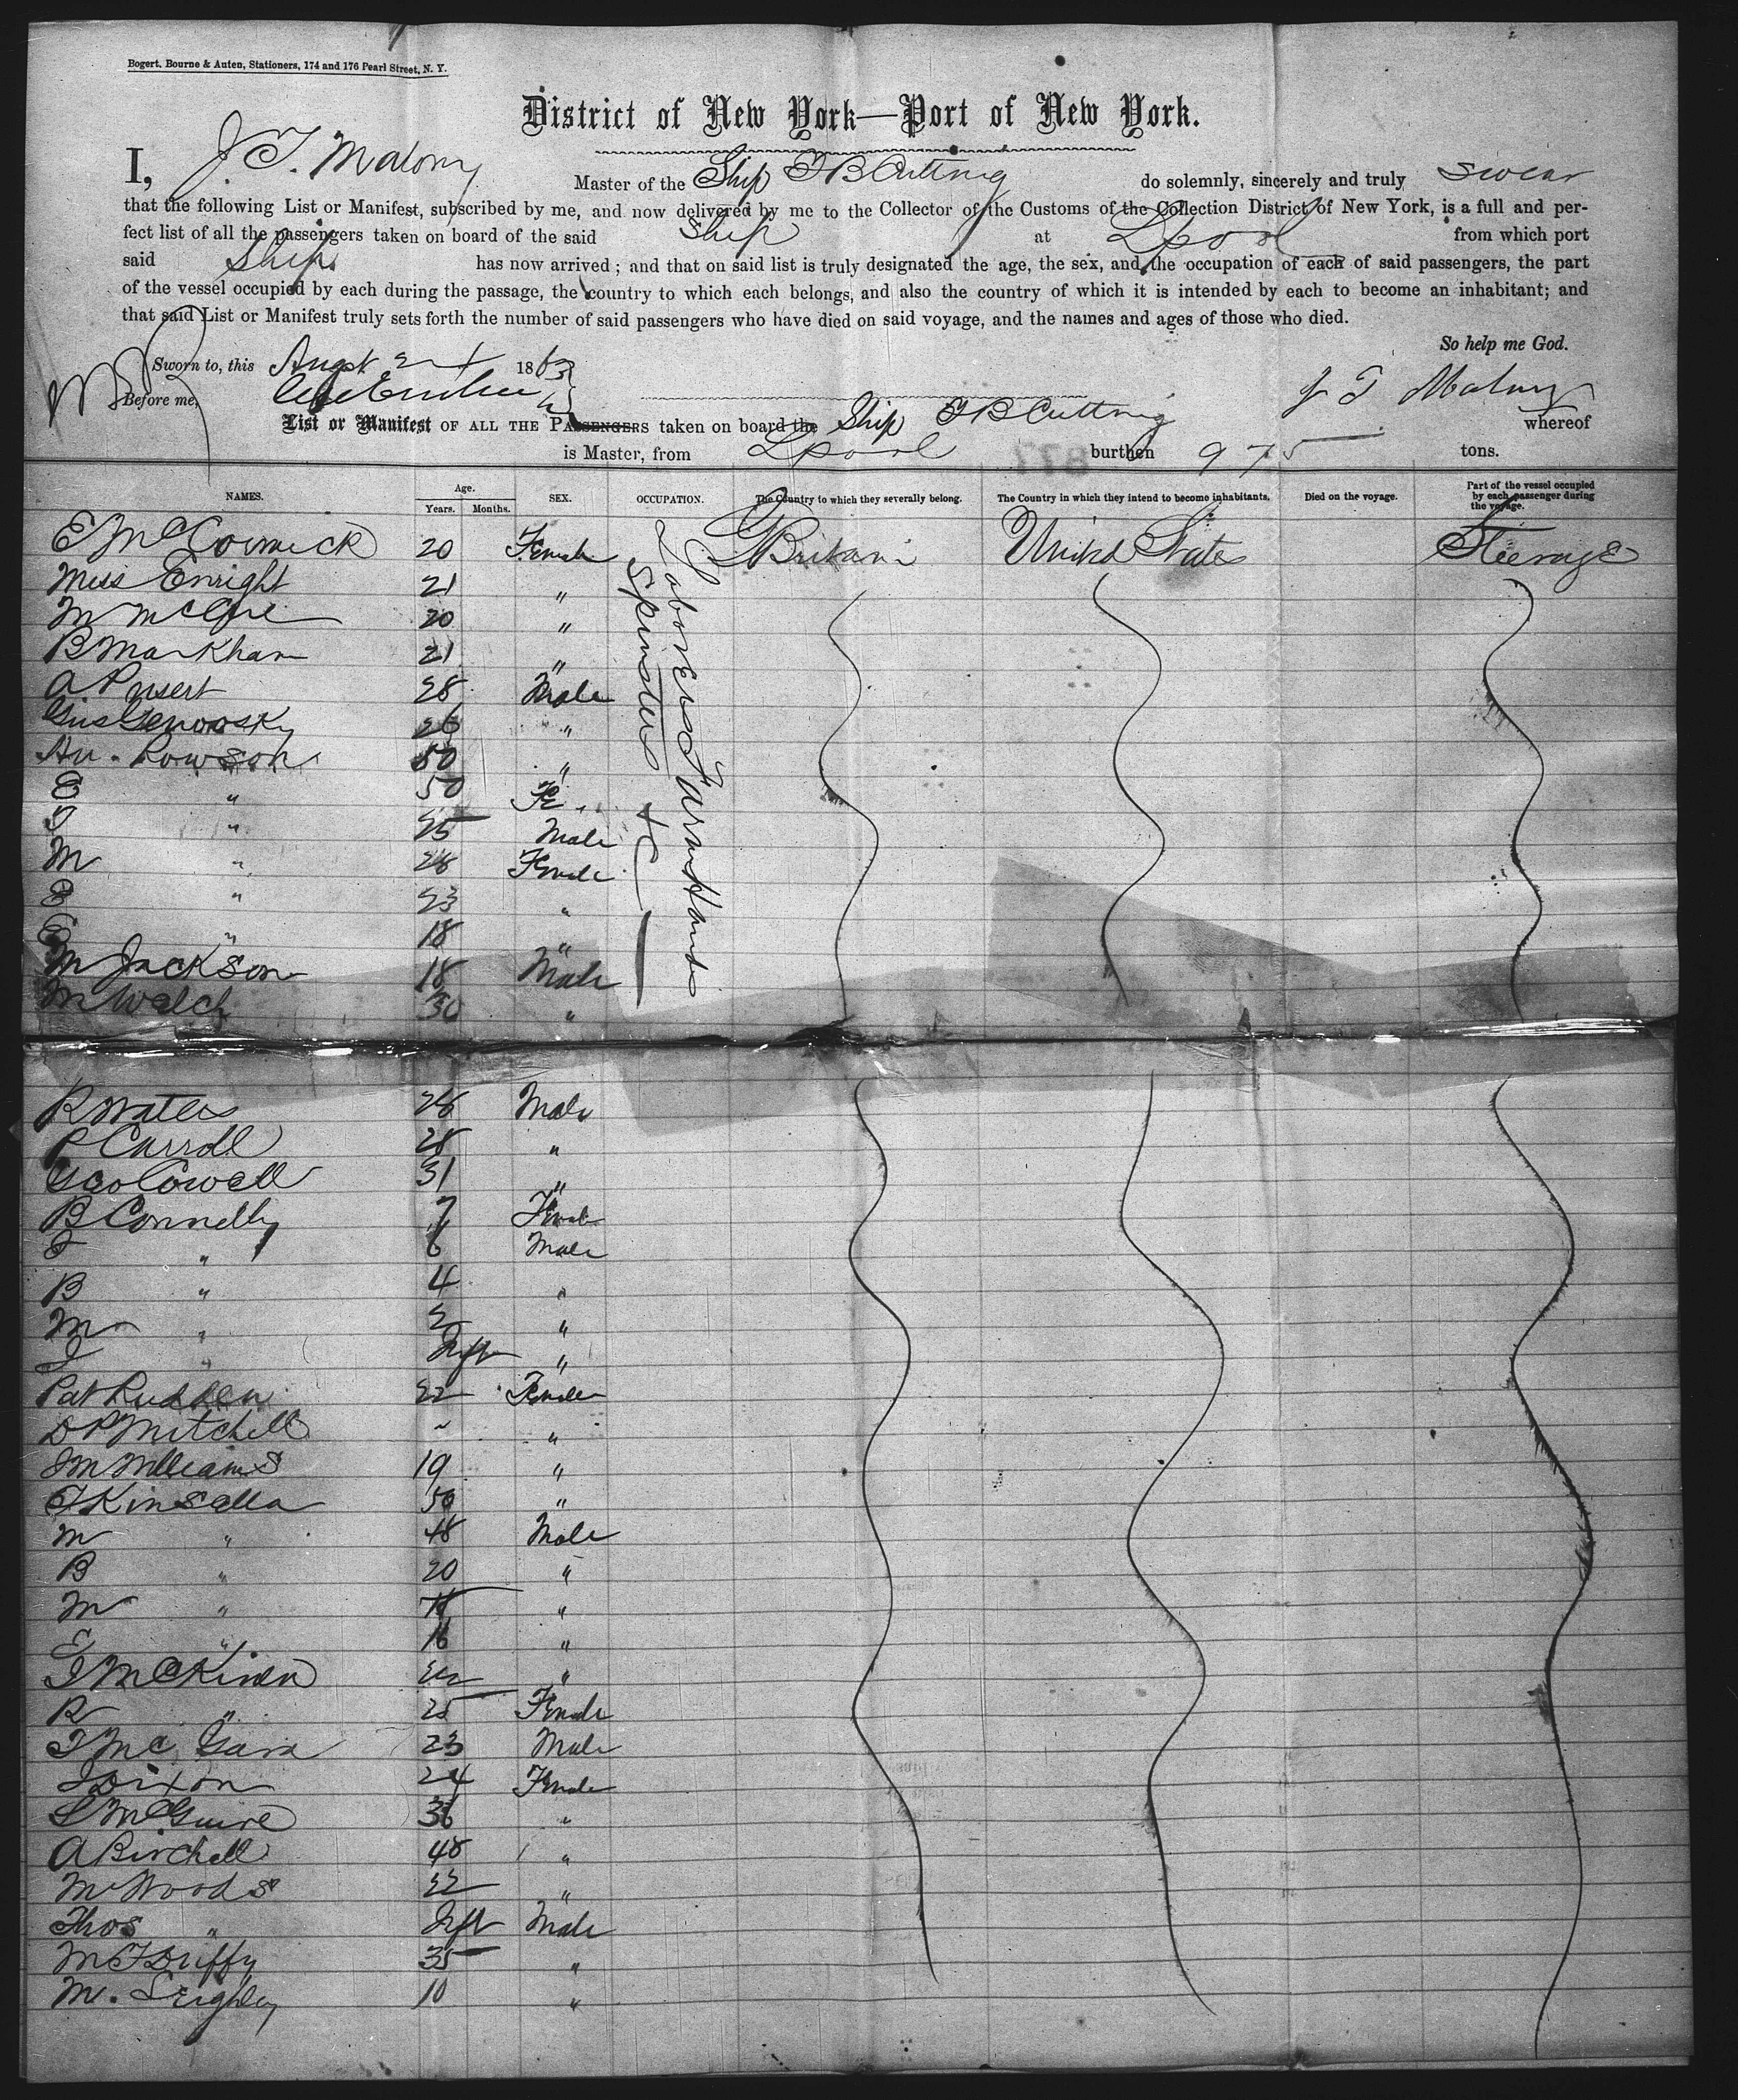 Bogert, Bourne & Auten, Stationers, 174 and 176 Pearl Street, N. Y.
District of New York—Port of New York.
I, J. T. Malony Master of the Ship F B Cutting do solemnly, sincerely and truly swear
that the following List or Manifest, subscribed by me, and now delivered by me to the Collector of the Customs of the Collection District of New York, is a full and per-
fect list of all the passengers taken on board of the said Ship at Lpool from which port
said Ship has now arrived; and that on said list is truly designated the age, the sex, and the occupation of each of said passengers, the part
of the vessel occupied by each during the passage, the country to which each belongs, and also the country of which it is intended by each to become an inhabitant; and
that said List or Manifest truly sets forth the number of said passengers who have died on said voyage, and the names and ages of those who died.
So help me God.
Sworn to, this Augst 1863
Before me, J T Malony
List or Manifest OF ALL THE PASSENGERS taken on board the Ship F B Cutting whereof
is Master, from Lpool burthen 975 tons.
NAMES. Age. Years. Months. SEX. OCCUPATION. The Country to which they severally belong. The Country in which they intend to become inhabitants. Died on the voyage. Part of the vessel occupied by each passenger during the voyage.
E McCormick 20 Female Laborers Farm Hands Spinsters &c G Britain United States Steerage
Miss Enright 21 "
M McCue 20 "
B Markham 21 "
A 28 Male
Gus 26 "
Rowson 50 "
E " 50 Fe
T " 25 Male
M " 28 Female
B " 23 "
E " 18 "
M Jackson 18 Male
M Walch 30 "
R Waters 28 Male
P Carroll 28 "
Geo Cowell 31 "
B Connelly 7 Female
J " 6 Male
B " 4 "
M " 2 "
J " Inft "
Pat Rudden 22 Female
D P Mitchell "
J M Williams 19 "
T Kinsella 50 "
M " 48 Male
B " 20 "
M " 18 "
E " 16 "
J McKiven 22 "
R " 25 Female
T McGara 23 Male
J Dixon 24 Female
S McGuire 36 "
A Birchell 48 "
M Woods 22 "
Thos " Inft Male
M F Duffy 35 "
M. Leighley 10 "